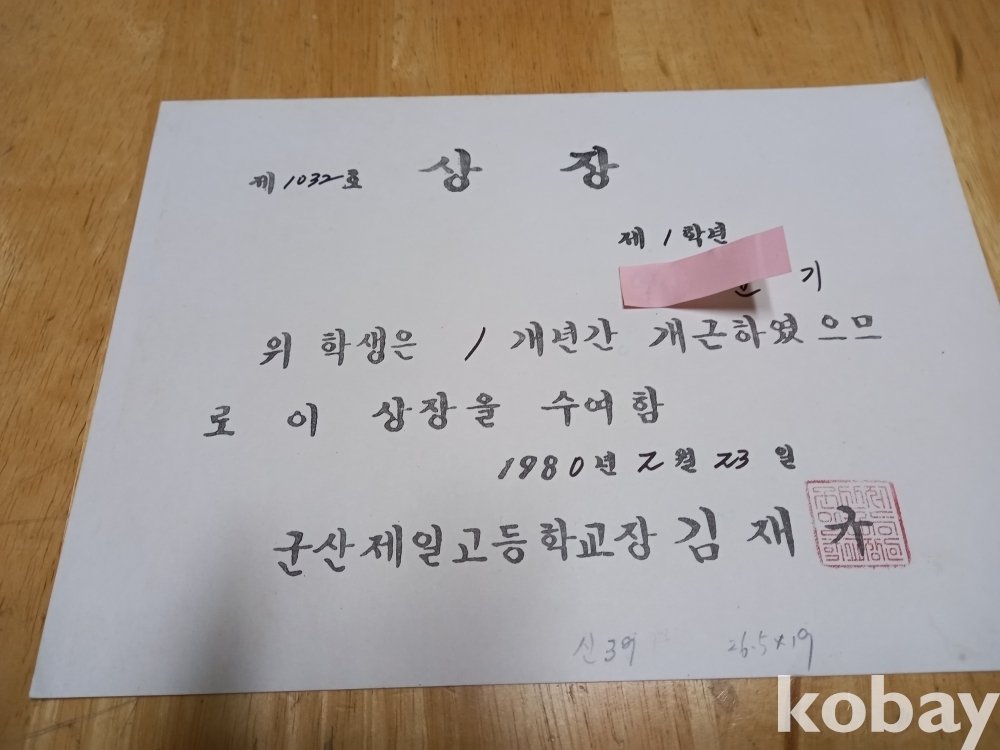 제 1032 호 상 장
제 1 학년
기
위 학생은 1 개년간 개근하였으므
로 이 상장을 수여함
1980년 2월 23일
군산제일고등학교장 김 재 규
신39 26.5x19
kobay